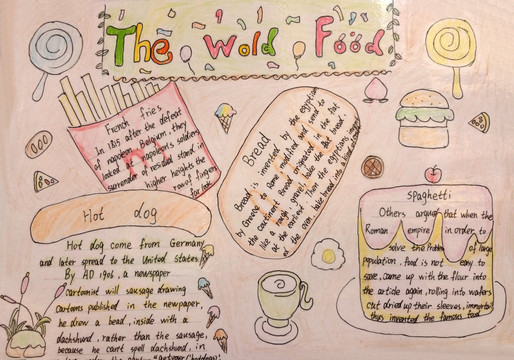 The Wold Food
French fries
In 1815 after the defeat
of napoleon Belgium, they
looked napoleon's soldiers,
surrender of needed stand in
higher heights the
row of fingers
Hot dog
Hot dog come from Germany
and later spread to the United States.
By AD 1906, a newspaper
cartoonint will sausage drawing
Cartoons published in the newspaper,
he drew a bead, inside with a
dachshund, rather than the sausage,
because he cant spell dachshund, in
Bread
Bread is invented by the egyptian
by Greece some modified and send to
the continent Bread appeared in the flat
like a rough gravel, bake the flat bread.
at the earliest. Then the egyptians
of the oven, bake bread into a kind
spaghetti
Others argue that when the
Roman empire in order to
solve the Problem of large
population. food is not easy to
save, came up with the flour into
the article again, rolling into wafers
cut dried up their sleeves, immortal
thus invented the famous food